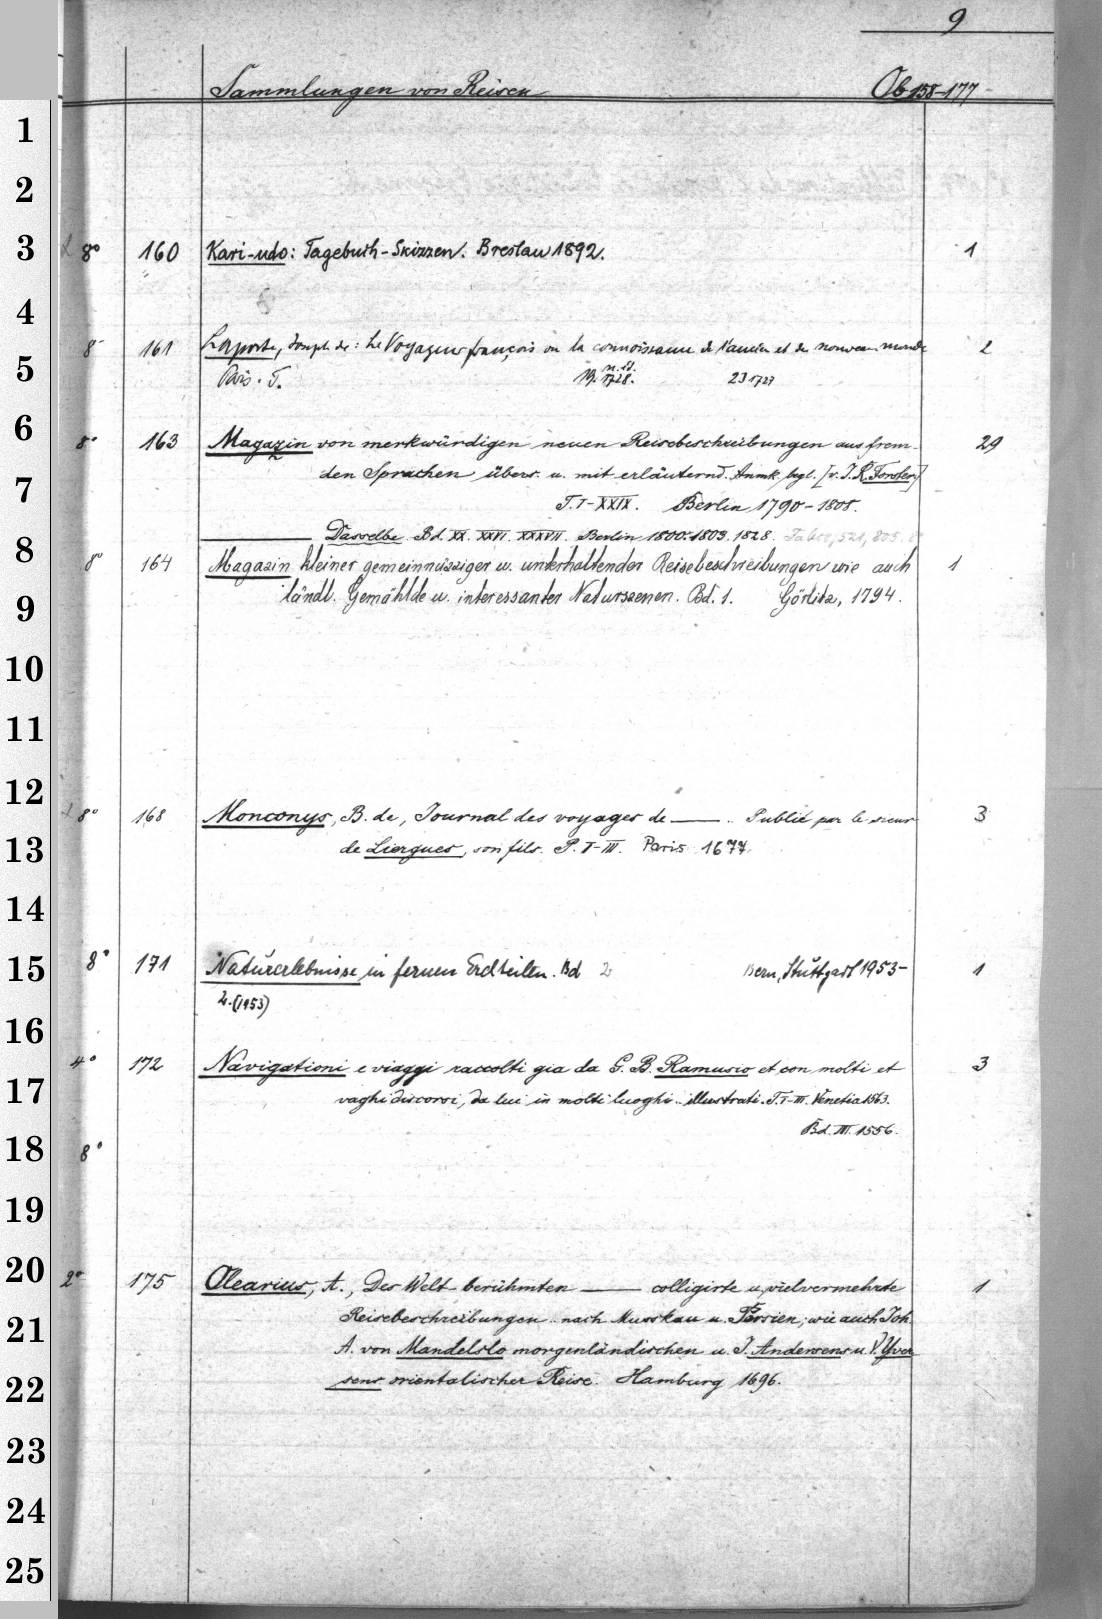 9
Sammlungen von Reisen Ob 158-177
1
2
3 8° 160 Kari-udo: Tagebuch-Skizzen. Breslau 1892. 1
4
8° 161 Laporte, Joseph de: Le Voyageur françois ou la connoissance de l'ancien et du nouveau monde 2
5 Paris. T. 19. n. éd. 1728. 23 1727
6 8° 163 Magazin von merkwürdigen neuen Reisebeschreibungen aus frem- 29
7 den Sprachen übers. u. mit erläuternd. Anmk. begl. [v. J. R. Forster]
T. I-XXIX. Berlin 1790-1808.
Dasselbe Bd. XX. XXVI. XXXVII. Berlin 1800-1809. 1828.
8 8° 164 Magazin kleiner gemeinnüzziger u. unterhaltender Reisebeschreibungen wie auch 1
9 ländl. Gemählde u. interessanter Naturszenen. Bd. 1. Görlitz, 1794.
10
11
12
8° 168 Monconys, B. de, Journal des voyages de —— .. Publié par le sieur 3
13 de Liergues, son fils. P. I-III. Paris 1677
14
15 8° 171 Naturerlebnisse in fernen Erdteilen. Bd 2 Bern, Stuttgart 1953- 1
2. (1953)
16
4° 172 Navigationi e viaggi raccolti gia da G. B. Ramusio et con molti et 3
17 vaghi discorsi, da lui in molti luoghi .. illustrati. T. I-III. Venetia 1563.
Bd. III. 1556.
18 8°
19
20 2° 175 Olearius, A., Des Welt berühmten —— colligirte u. vielvermehrte 1
21 Reisebeschreibungen .. nach Musskau u. Persien, wie auch Joh.
A. von Mandelslo morgenländischen u. J. Andersens u. V. Yver
22 sens orientalischer Reise. Hamburg 1696.
23
24
25